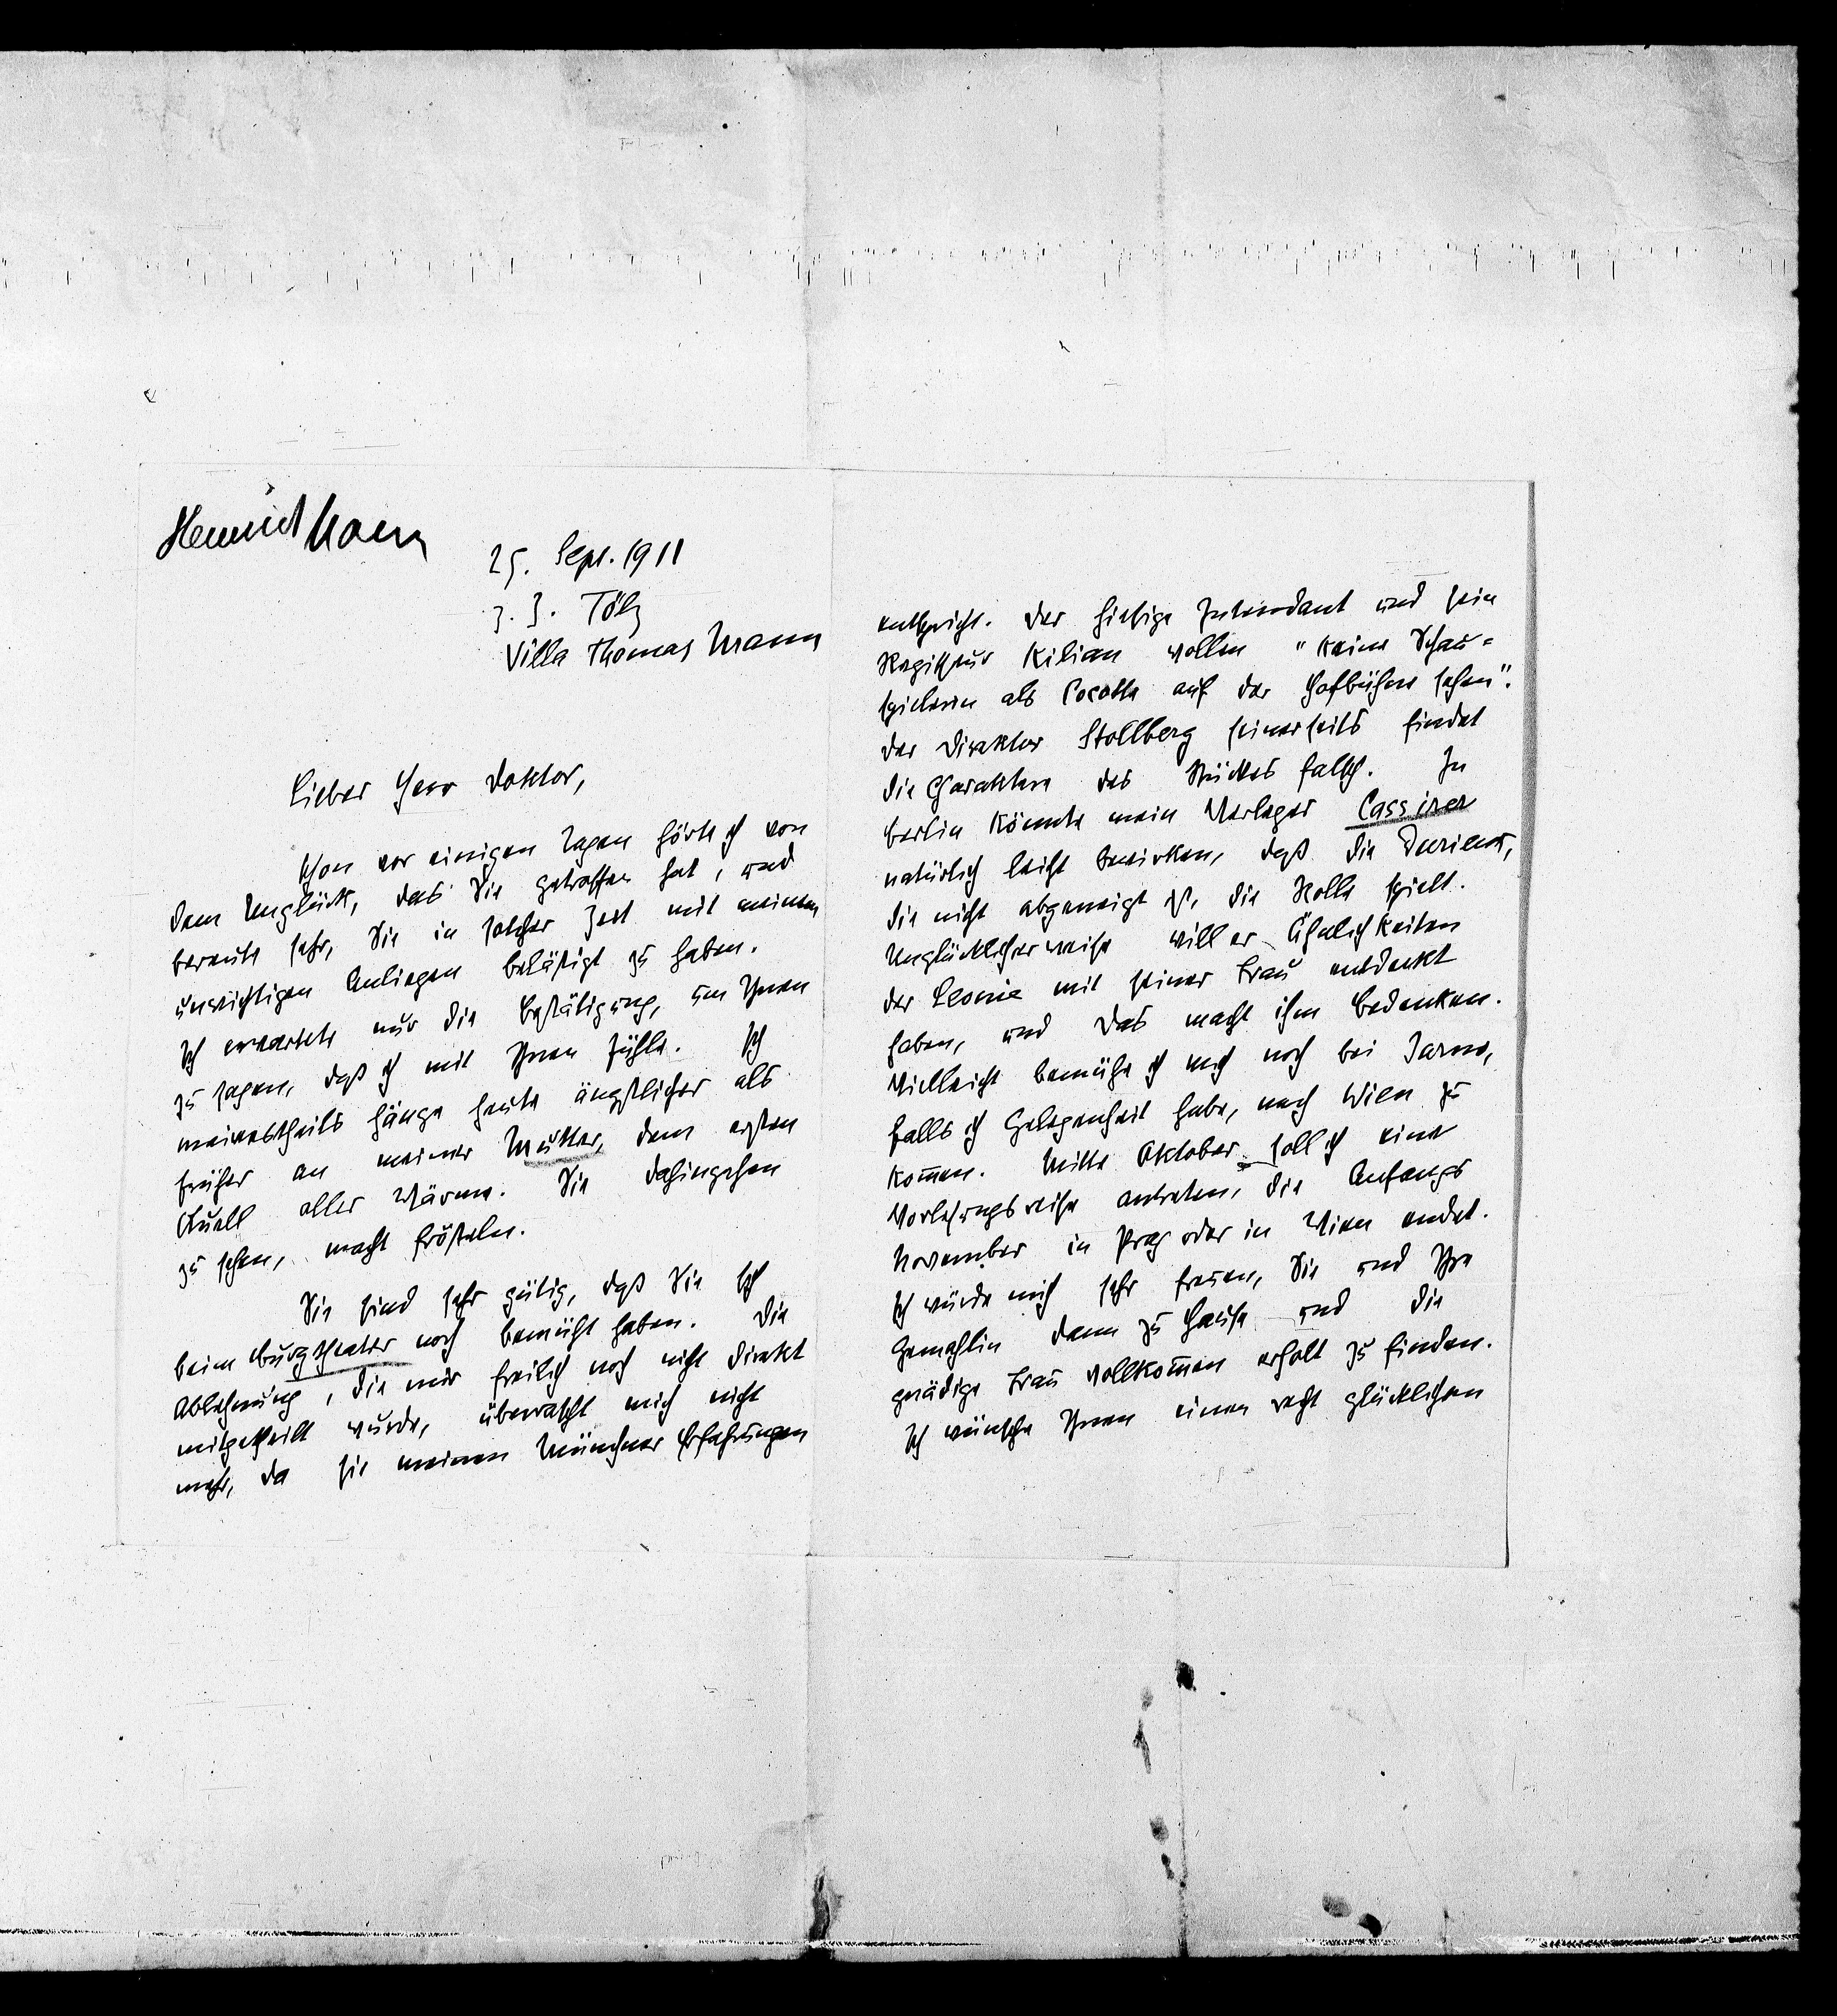 Heinrich Mann
25. Sept. 1911
z. Z. Tölz
Villa Thomas Mann
Lieber Herr Doktor,
schon vor einigen Tagen hörte ich von
dem Unglück, das Sie getroffen hat, und
bereute sehr, Sie in solcher Zeit mit meinen
unwichtigen Anliegen belästigt zu haben.
Ich erwartete nur die Bestätigung, um Ihnen
zu sagen, daß ich mit Ihnen fühle. Ich
meinestheils hänge heute ängstlicher als
früher an meiner Mutter, dem ersten
Quell aller Wärme. Sie dahingehen
zu sehen, macht frösteln.
Sie sind sehr gütig, daß Sie sich
beim Burgtheater noch bemüht haben. Die
Ablehnung, die mir freilich noch nicht direkt
mitgetheilt wurde, überrascht mich nicht
mehr, da sie meinen Münchner Erfahrungen
entspricht. Der hiesige Intendant und sein
Regisseur Kilian wollen "keine Schau=
spielerin als Cocotte auf der Hofbühne sehen".
Der Direktor Stollberg seinerseits findet
die Charaktere des Stückes falsch. In
Berlin könnte mein Verleger Cassirer
natürlich leicht bewirken, daß die Durieux,
die nicht abgeneigt ist, die Rolle spielt.
Unglücklicherweise will er Ähnlichkeiten
der Leonie mit seiner Frau entdeckt
haben, und das macht ihm Bedenken.
Vielleicht bemühe ich mich noch bei Jarno,
falls ich Gelegenheit habe, nach Wien zu
kom̄en. Mitte Oktober soll ich eine
Vorlesungsreise antreten, die Anfangs
November in Prag oder in Wien endet.
Ich würde mich sehr freuen, Sie und Ihre
Gemahlin dann zu Hause und die
gnädige Frau vollkom̄en erholt zu finden.
Ich wünsche Ihnen einen recht glücklichen